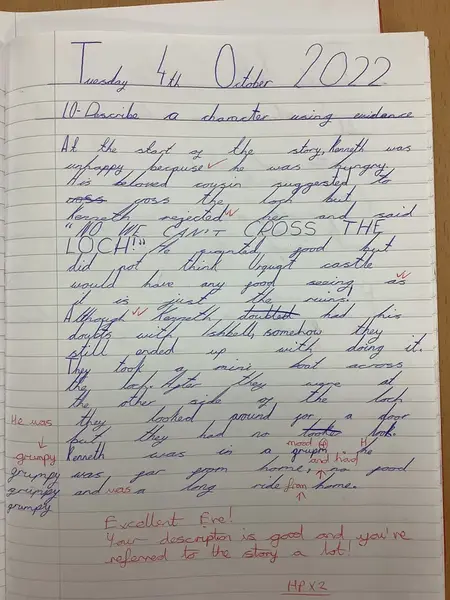 Tuesday 4th October 2022
LO-Describe a character using evidence
At the start of the story, Kenneth was
unhappy because he was hungry.
His beloved cousin suggested to
cross the loch but
Kenneth rejected her and said
"NO WE CAN'T CROSS THE
LOCH!" He wanted food but
did not think Urquart castle
would have any food seeing as
it is just the ruins.
Although Kenneth had his
doubts with Ishbell, somehow they
still ended up with doing it.
They took a mini boat across
the loch. After they were at
the other side of the loch
He was they looked around for a door
but they had no look.
mood H
grumpy Kenneth was in a grupm. he
and had
grumpy was far from home, no food
grumpy and was a long ride from home.
grumpy
Excellent Eve!
Your description is good and you've
referred to the story a lot!
HP x 2